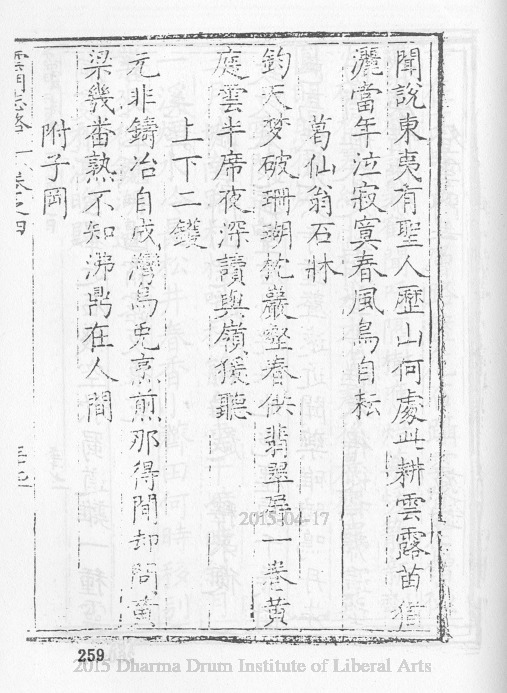 聞說東夷有聖人歷山何處此耕雲露苗猶
灑當年泣寂寞春風鳥自耘
葛仙翁石牀
鈞天梦破珊瑚枕巖壑春供翡翠屏一卷黃
庭雲半席夜深讀與嶺猨聽
上下二鑊
元非鑄冶自成灣烏兎烹煎那得間却問黃
梁幾番熟不知沸鼎在人間
附子岡
雲門志略 卷之四
2015-04-17
259
2015 Dharma Drum Institute of Liberal Arts